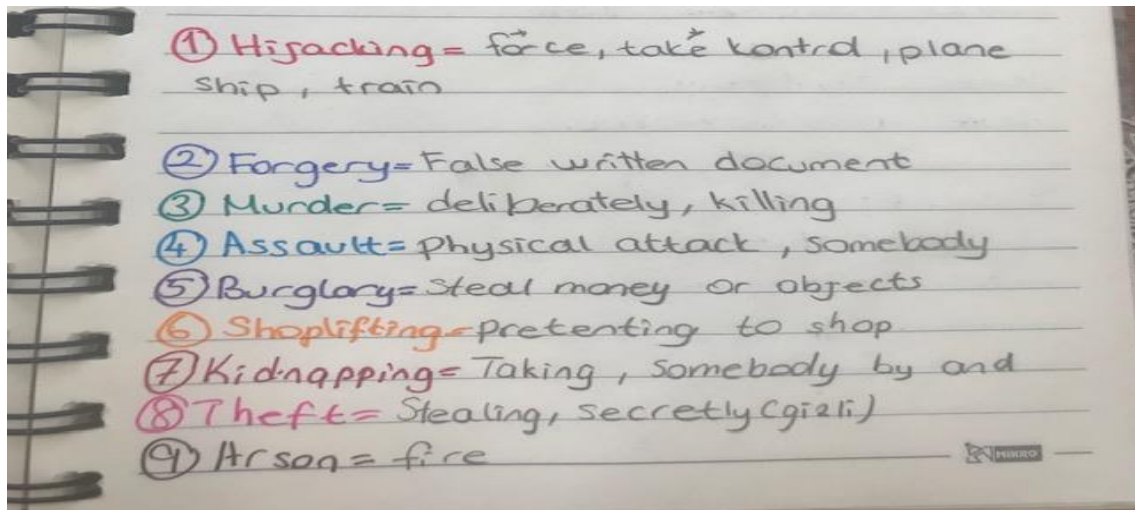 ① Hijacking= force, take kontrol, plane
ship, train
② Forgery= False written document
③ Murder= deliberately, killing
④ Assault= Physical attack, somebody
⑤ Burglary= Steal money or objects
⑥ Shoplifting= pretenting to shop
⑦ Kidnapping= Taking, somebody by and
⑧ Theft= Stealing, secretly (gizli)
⑨ Arson= fire
MIKRO